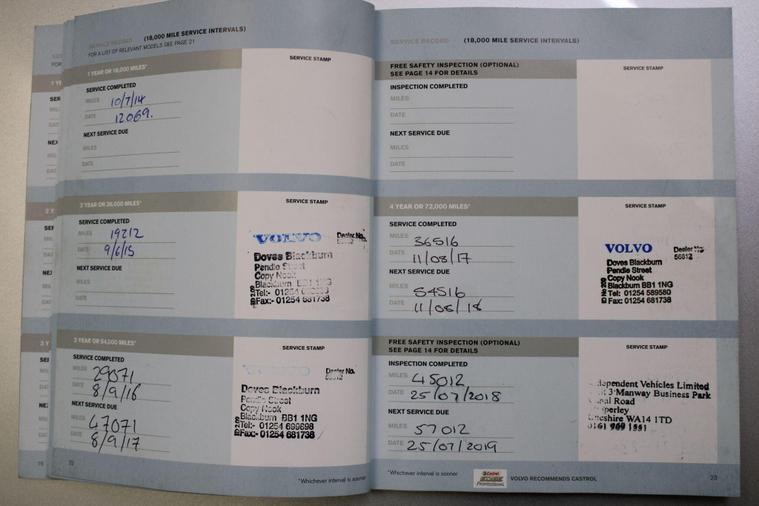 SERVICE RECORD (18,000 MILE SERVICE INTERVALS)
FOR A LIST OF RELEVANT MODELS SEE PAGE 21
1 YEAR OR 18,000 MILES*
SERVICE STAMP
SERVICE COMPLETED
MILES 10/7/14
DATE 12069.
NEXT SERVICE DUE
MILES
DATE
2 YEAR OR 36,000 MILES*
SERVICE STAMP
SERVICE COMPLETED
MILES 19212
DATE 9/6/15
NEXT SERVICE DUE
MILES
DATE
VOLVO Dealer No.
Doves Blackburn
Pendle Street
Copy Nook
Blackburn BB1 1NG
Tel:- 01254
Fax:- 01254 681738
3 YEAR OR 54,000 MILES*
SERVICE STAMP
SERVICE COMPLETED
MILES 29071
DATE 8/9/16
NEXT SERVICE DUE
MILES 47071
DATE 8/9/17
VOLVO Dealer No.
Doves Blackburn
Pendle Street
Copy Nook
Blackburn BB1 1NG
Tel:- 01254
Fax:- 01254 681738
22
*Whichever interval is sooner
SERVICE RECORD (18,000 MILE SERVICE INTERVALS)
FREE SAFETY INSPECTION (OPTIONAL)
SEE PAGE 14 FOR DETAILS
SERVICE STAMP
INSPECTION COMPLETED
MILES
DATE
NEXT SERVICE DUE
MILES
DATE
4 YEAR OR 72,000 MILES*
SERVICE STAMP
SERVICE COMPLETED
MILES 36516
DATE 11/08/17
NEXT SERVICE DUE
MILES 54516
DATE 11/08/18
VOLVO Dealer No:
56812
Doves Blackburn
Pendle Street
Copy Nook
Blackburn BB1 1NG
Tel: 01254 589580
Fax: 01254 681738
FREE SAFETY INSPECTION (OPTIONAL)
SEE PAGE 14 FOR DETAILS
SERVICE STAMP
INSPECTION COMPLETED
MILES 45012
DATE 25/07/2018
NEXT SERVICE DUE
MILES 57012
DATE 25/07/2019
Vehicles Limited
3 Manway Business Park
Road
WA14 1TD
0161
*Whichever interval is sooner
Castrol
EDGE
Professional
VOLVO RECOMMENDS CASTROL
23